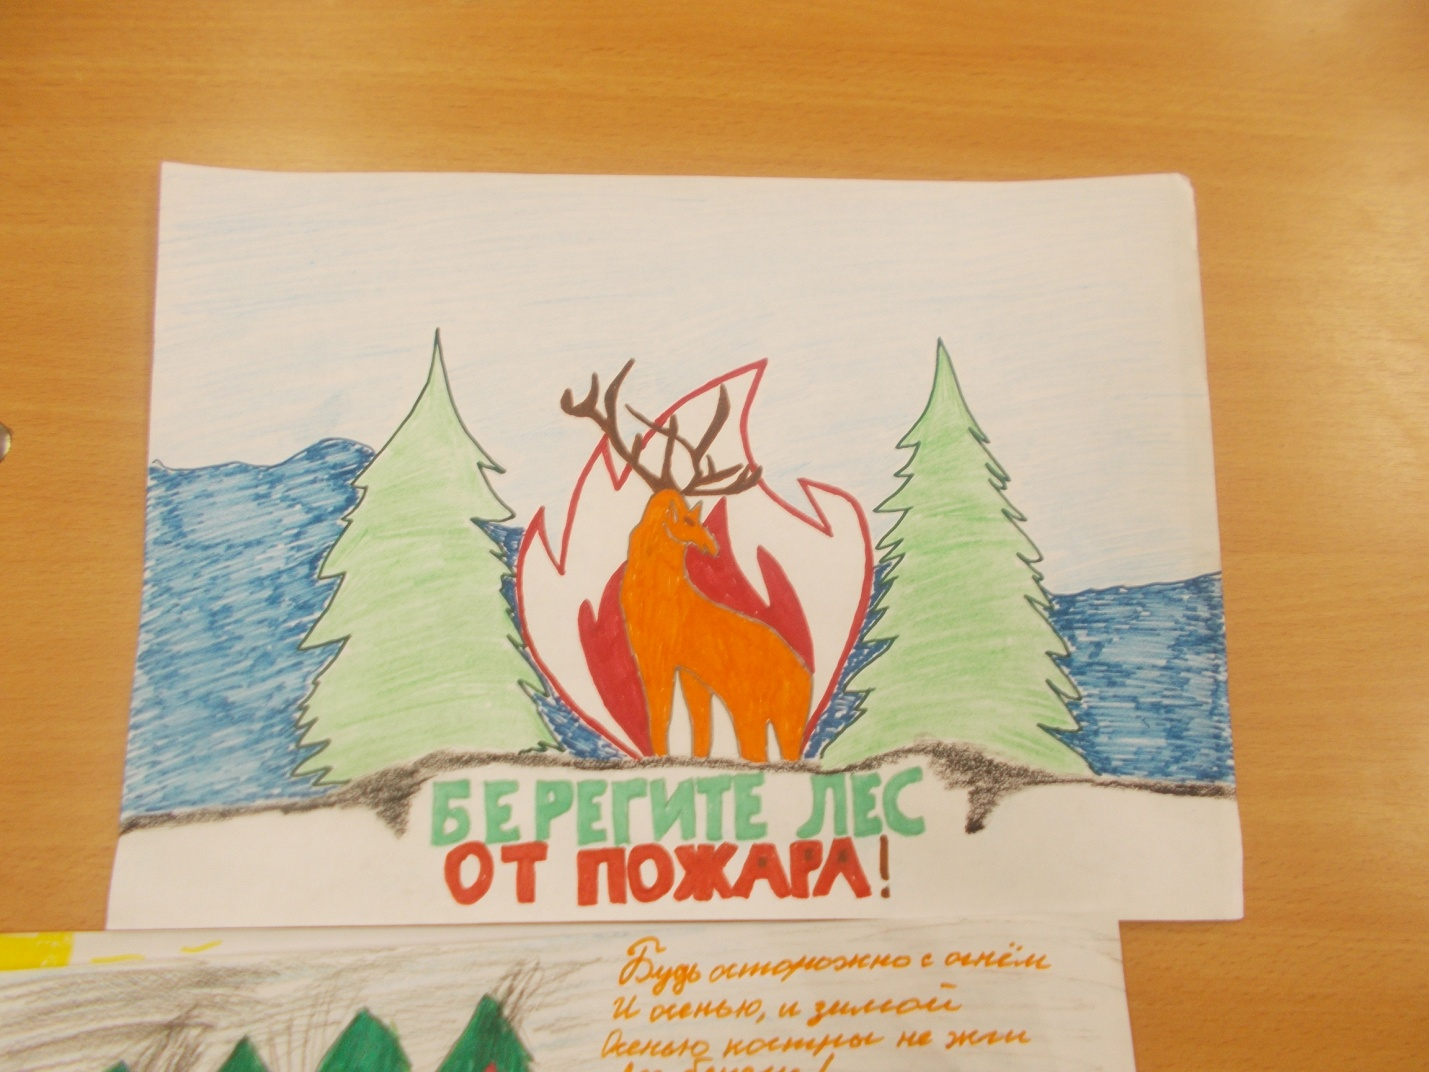 БЕРЕГИТЕ ЛЕС
ОТ ПОЖАРА!
Будь осторожно с огнём
И осенью, и зимой
Осенью костры не жги